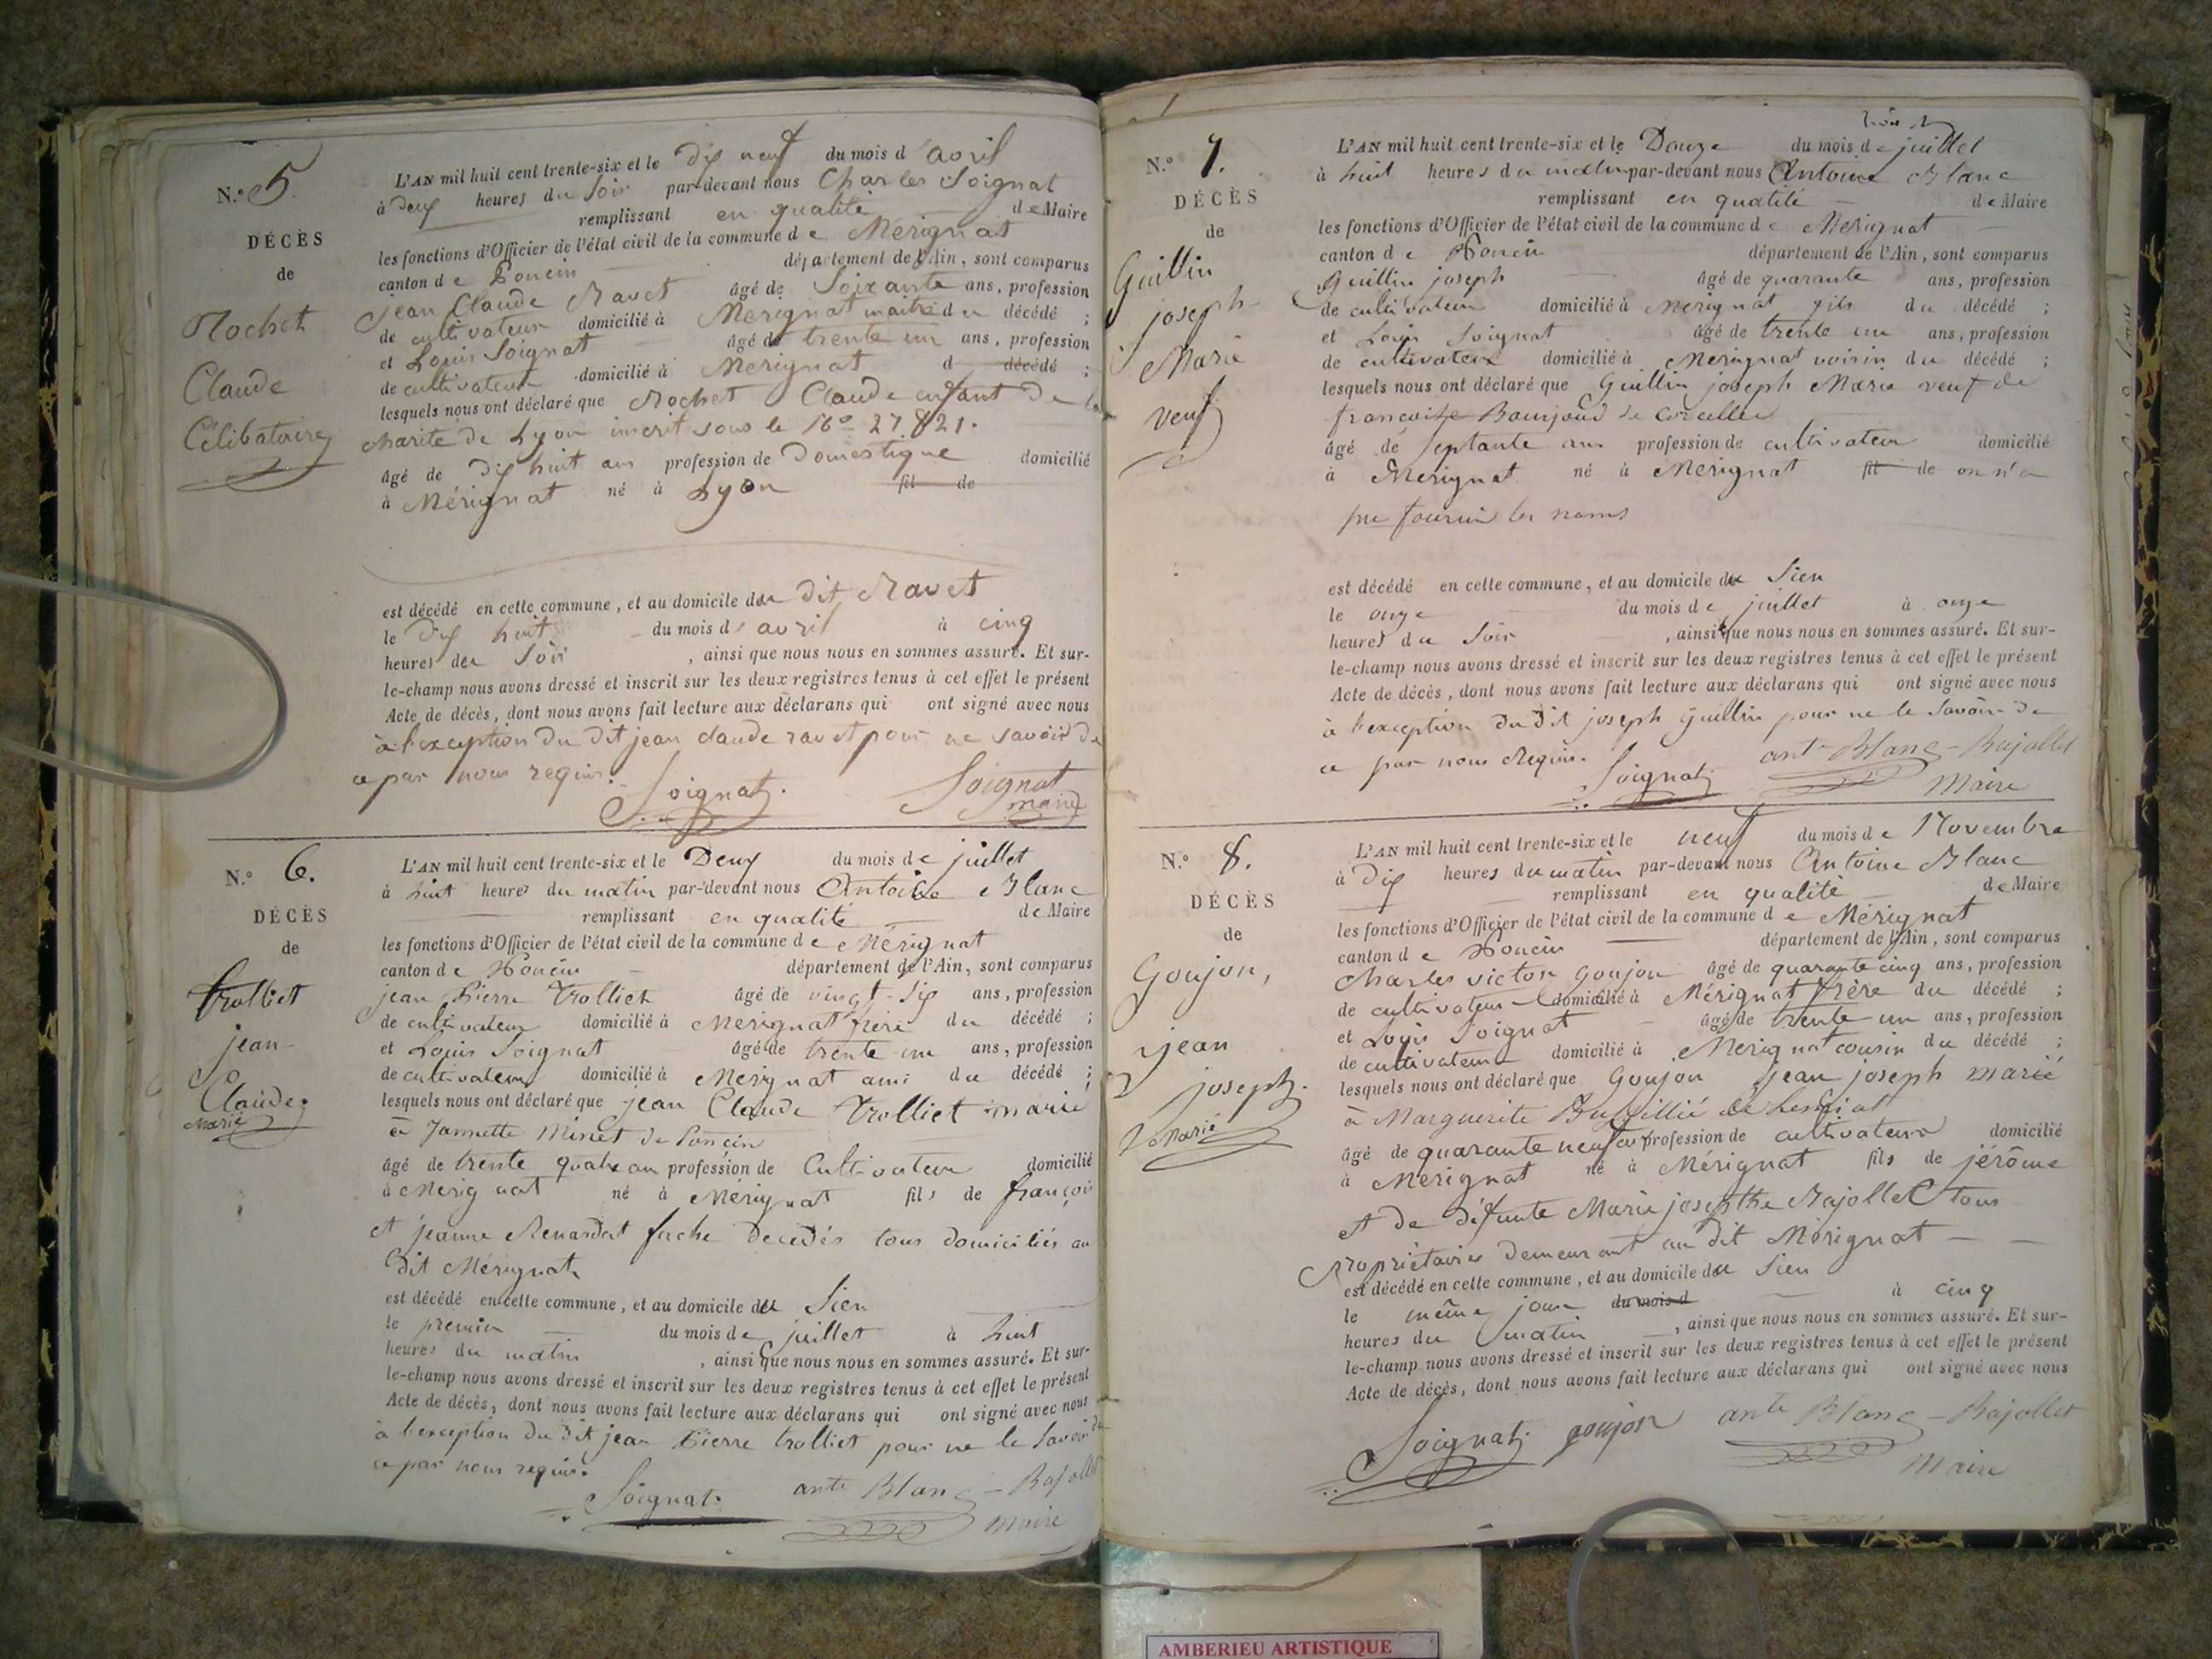 N.º 5.
DÉCÈS
de
Rochet
Claude
Célibataire
L'AN mil huit cent trente-six et le dix neuf du mois d'avril
à deux heures du soir par-devant nous Charles Soignat
remplissant en qualité de Maire
les fonctions d'Officier de l'état civil de la commune de Mérignat
canton de Poncin département de l'Ain, sont comparus
jean Claude Ravet âgé de Soixante ans, profession
de cultivateur domicilié à Merignat maitre du décédé ;
et Louis Soignat âgé de trente un ans, profession
de cultivateur domicilié à Merignat d décédé ;
lesquels nous ont déclaré que Rochet Claude enfant de la
charité de Lyon inscrit sous le Nº 27821.
âgé de dix huit ans profession de Domestique domicilié
à Mérignat né à Lyon fil de
est décédé en cette commune, et au domicile du dit Ravet
le dix huit du mois d'avril à cinq
heures du Soir, ainsi que nous nous en sommes assuré. Et sur-
le-champ nous avons dressé et inscrit sur les deux registres tenus à cet effet le présent
Acte de décès, dont nous avons fait lecture aux déclarans qui ont signé avec nous
à l'exception du dit jean claude ravet pour ne savoir de
ce par nous requis.
Soignat. Soignat
maire
N.º 6.
DÉCÈS
de
trolliet
jean
Claude
Marié
L'AN mil huit cent trente-six et le Deux du mois de juillet
à huit heures du matin par-devant nous Antoine Blanc
remplissant en qualité de Maire
les fonctions d'Officier de l'état civil de la commune de Mérignat
canton de Poncin département de l'Ain, sont comparus
jean Pierre trolliet âgé de vingt-six ans, profession
de cultivateur domicilié à Merignat frère du décédé ;
et Louis Soignat âgé de trente-un ans, profession
de cultivateur domicilié à Merignat ami du décédé ;
lesquels nous ont déclaré que jean Claude trolliet marié
à Jannette Minet de Poncin
âgé de trente quatre an profession de Cultivateur domicilié
à Merignat né à Mérignat fils de françois
et jeanne Renardat fache décédés tous domiciliés au
dit Mérignat
est décédé en cette commune, et au domicile du Sien
le premier du mois de juillet à huit
heures du matin, ainsi que nous nous en sommes assuré. Et sur-
le-champ nous avons dressé et inscrit sur les deux registres tenus à cet effet le présent
Acte de décès, dont nous avons fait lecture aux déclarans qui ont signé avec nous
à l'exception du dit jean Pierre trolliet pour ne le savoir de
ce par nous requis.
Soignat. ante Blanc - Rajollet
maire
N.º 7.
DÉCÈS
de
Guillin
joseph
Marie
veuf
L'AN mil huit cent trente-six et le Douze du mois de juillet
à huit heures du matin par-devant nous Antoine Blanc
remplissant en qualité de Maire
les fonctions d'Officier de l'état civil de la commune de Merignat
canton de Poncin département de l'Ain, sont comparus
Guillin joseph âgé de quarante ans, profession
de cultivateur domicilié à Merignat fils du décédé ;
et Louis Soignat âgé de trente un ans, profession
de cultivateur domicilié à Merignat voisin du décédé ;
lesquels nous ont déclaré que Guillin joseph Marie veuf de
françoise Bourjoud de Corcelle
âgé de Septante ans profession de cultivateur domicilié
à Merignat né à Merignat fil de on n'a
pu fournir les noms
est décédé en cette commune, et au domicile du Sien
le onze du mois de juillet à onze
heures du Soir, ainsi que nous nous en sommes assuré. Et sur-
le-champ nous avons dressé et inscrit sur les deux registres tenus à cet effet le présent
Acte de décès, dont nous avons fait lecture aux déclarans qui ont signé avec nous
à l'exception du dit joseph guillin pour ne le Savoir de
ce par nous Requis.
Soignat. ante Blanc - Rajollet
Maire
N.º 8.
DÉCÈS
de
Goujon,
jean
joseph.
Marié
L'AN mil huit cent trente-six et le neuf du mois de Novembre
à Dix heures du matin par-devant nous Antoine Blanc
remplissant en qualité de Maire
les fonctions d'Officier de l'état civil de la commune de Mérignat
canton de Poncin département de l'Ain, sont comparus
Charles victor goujon âgé de quarante cinq ans, profession
de cultivateur domicilié à Mérignat frère du décédé ;
et Louis Soignat âgé de trente un ans, profession
de cultivateur domicilié à Merignat cousin du décédé ;
lesquels nous ont déclaré que Goujon jean joseph marié
à Marguerite de
âgé de quarante neuf an profession de cultivateur domicilié
à Merignat né à Mérignat fils de jérôme
et de défunte Marie josephte Rajollet tous
Propriétaires demeurant au dit Mérignat
est décédé en cette commune, et au domicile du Sien
le même jour du mois d à cinq
heures du matin, ainsi que nous nous en sommes assuré. Et sur-
le-champ nous avons dressé et inscrit sur les deux registres tenus à cet effet le présent
Acte de décès, dont nous avons fait lecture aux déclarans qui ont signé avec nous
Soignat goujon ante Blanc - Rajollet
Maire
AMBERIEU ARTISTIQUE